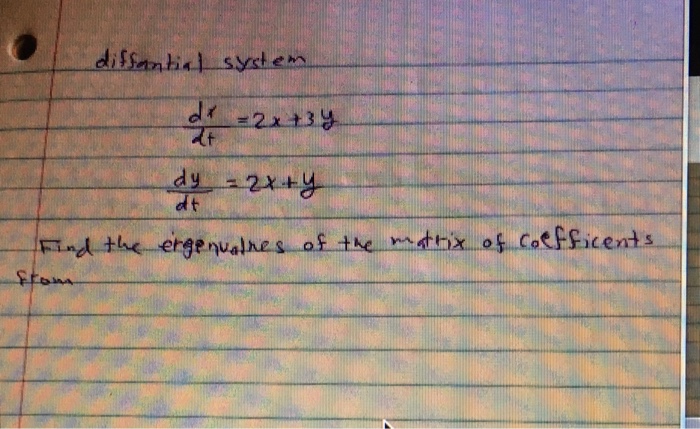 diffantial system
dx/dt = 2x + 3y
dy/dt = 2x + y
Find the eigenvalues of the matrix of coefficents
from